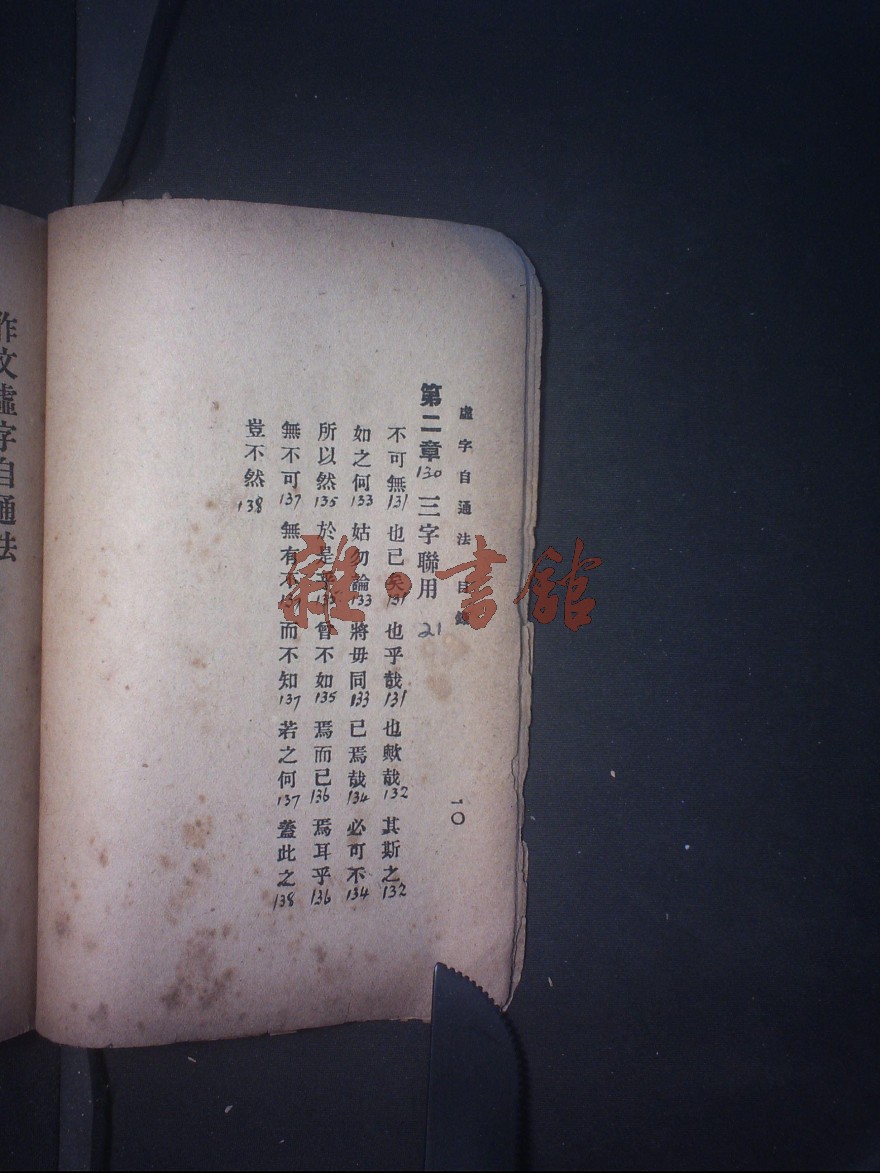 虛字自通法 目錄 一〇
第二章 130 三字聯用 21
不可無 131 也已矣 131 也乎哉 131 也歟哉 132 其斯之 132
如之何 133 姑勿論 133 將毋同 133 已焉哉 134 必可不 134
所以然 135 於是乎 135 曾不如 135 焉而已 136 焉耳乎 136
無不可 137 無有不 137 而不知 137 若之何 137 蓋此之 138
豈不然 138
作文虛字自通法
雜·書館